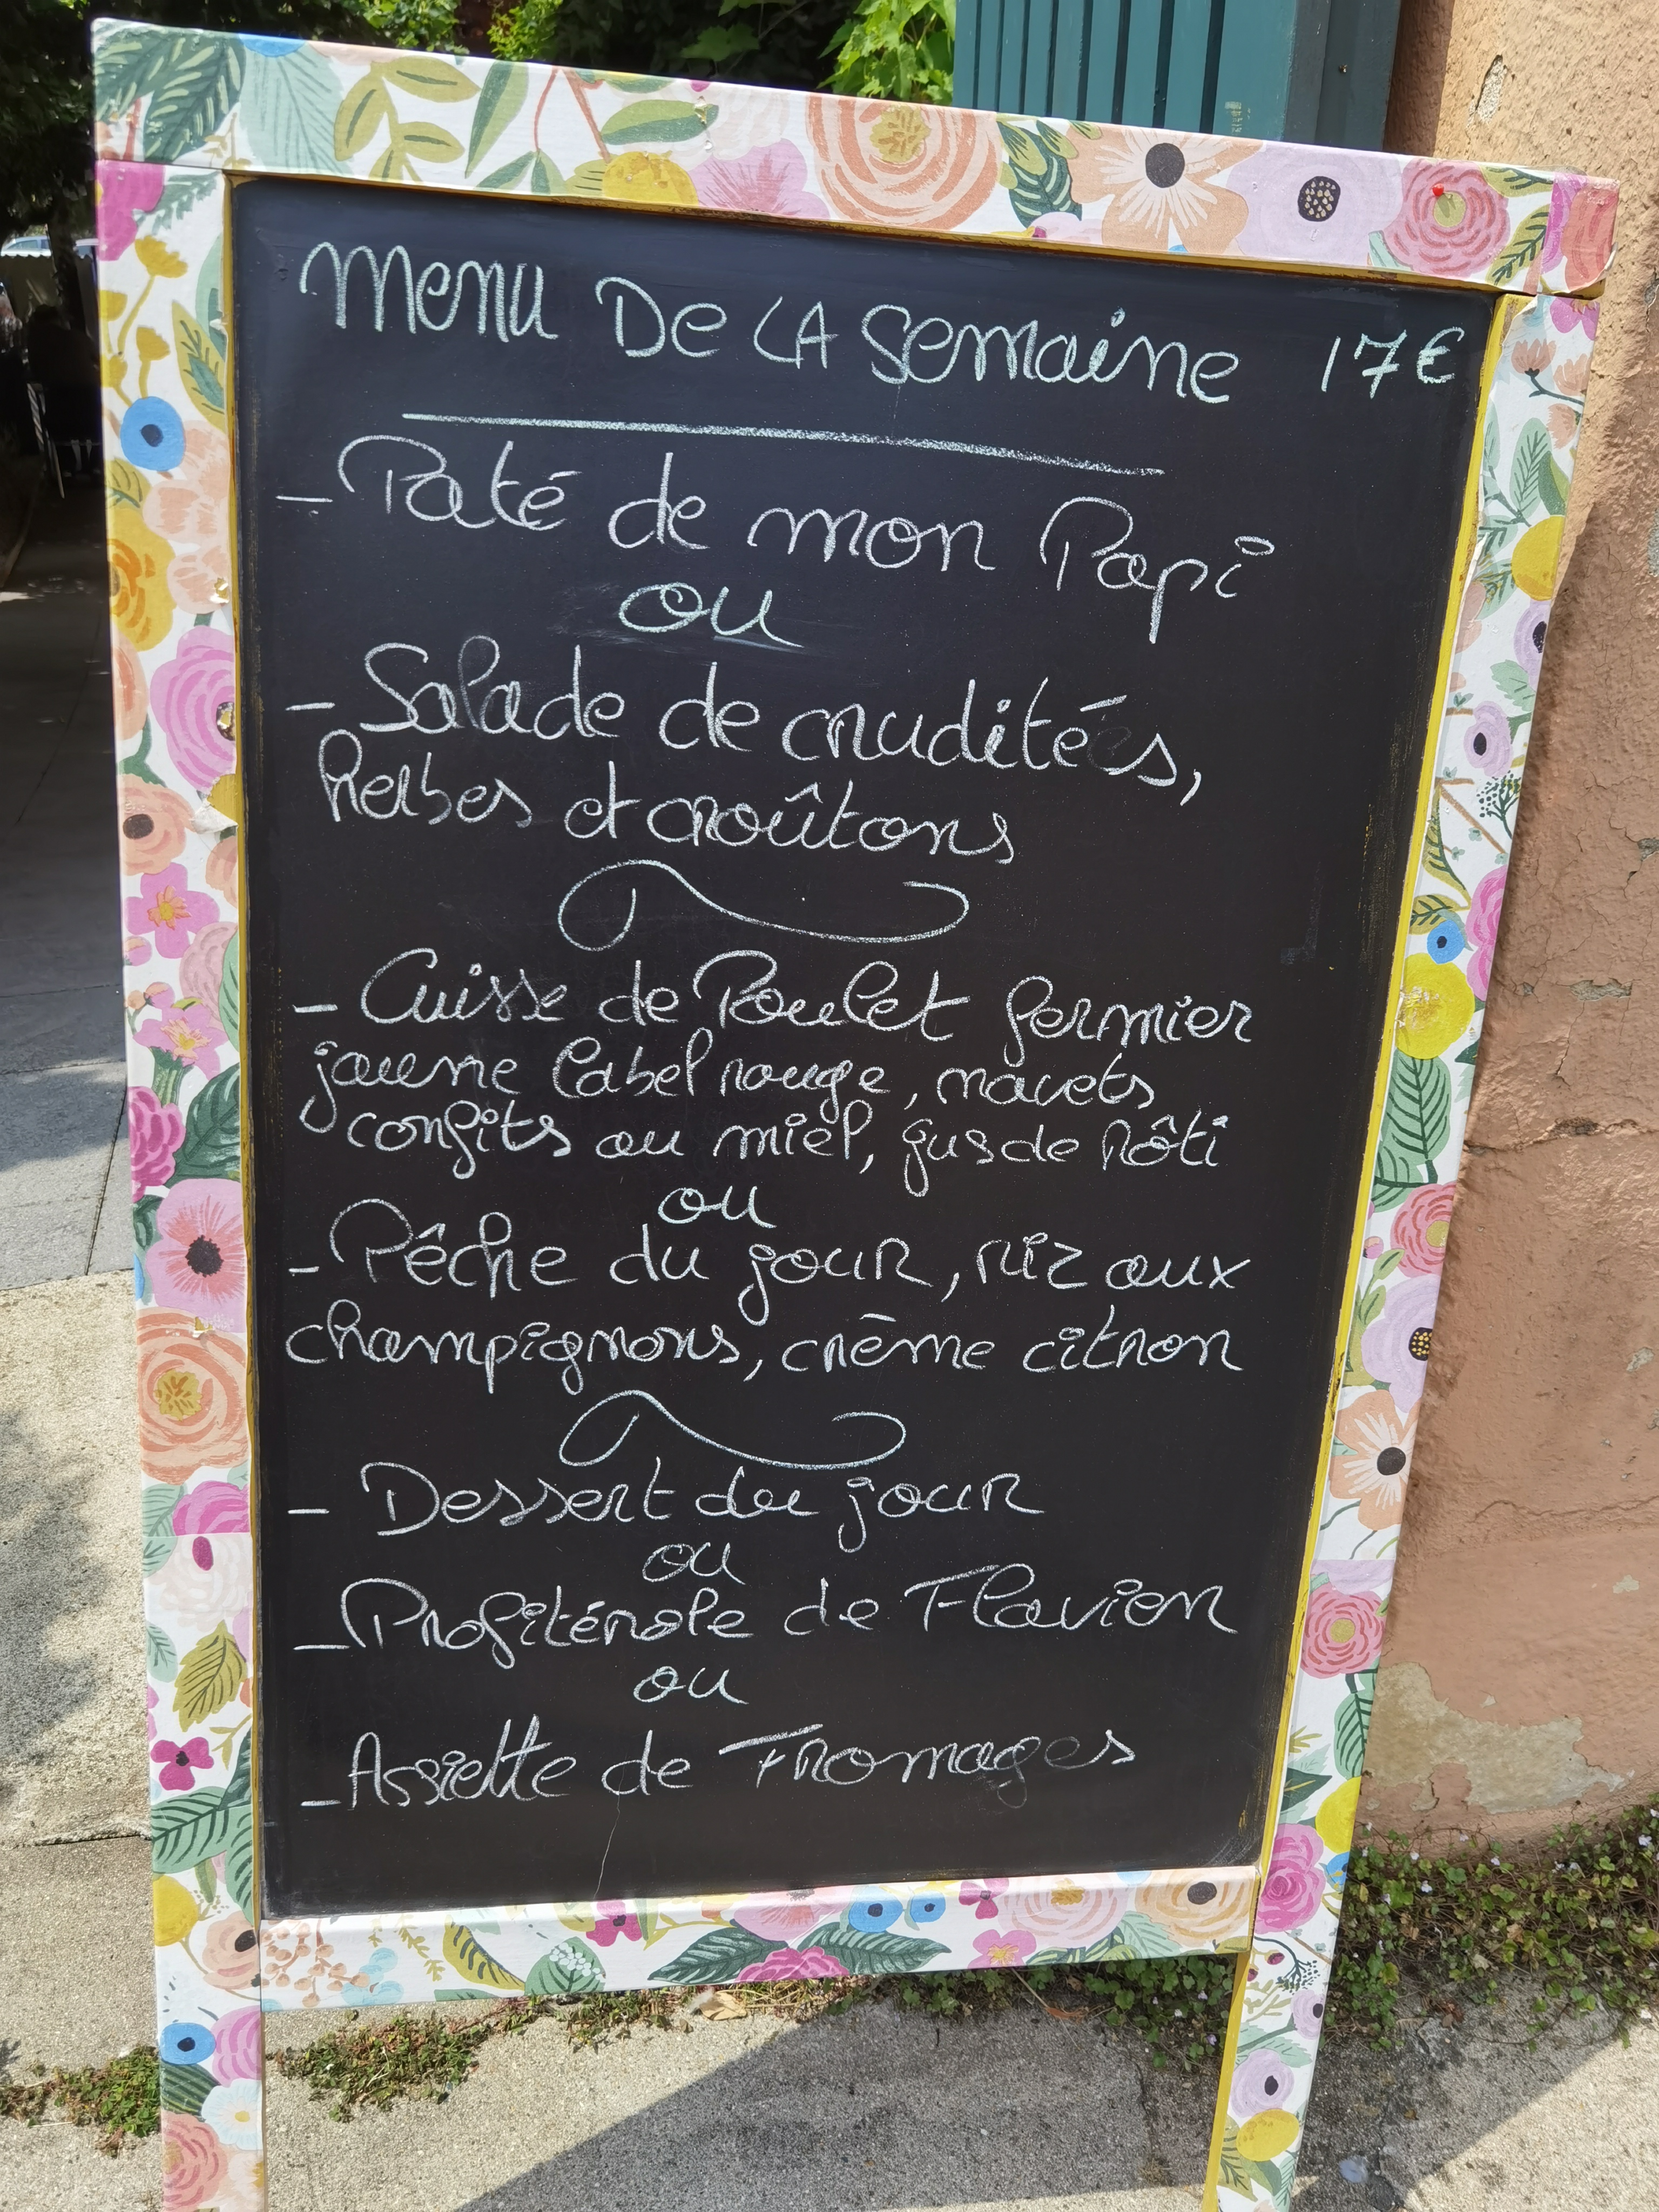 Menu De LA Semaine 17€
- Paté de mon Papi
ou
- Salade de crudités,
herbes et croûtons
- Cuisse de Poulet fermier
jaune label rouge, navets
confits au miel, jus de rôti
ou
- Pêche du jour, riz aux
champignons, crème citron
- Dessert du jour
ou
- Profitérole de Flavien
ou
- Assiette de Fromages